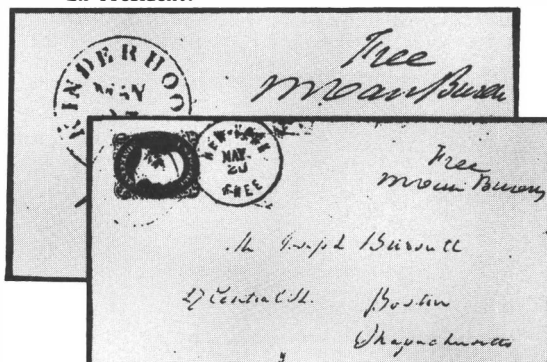 KINDERHOO
MAY
Free
MVan Buren
NEW-YORK
MAY
FREE
Free
MVan Buren
Mr Joseph
27 Central St.
Boston
Massachusetts